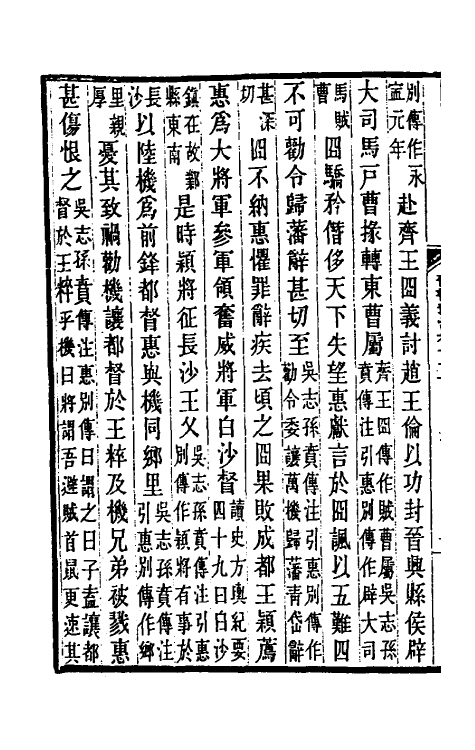 別傳作永
寍元年
赴齊王冏義討趙王倫以功封晉興縣侯辟
大司馬戶曹掾轉東曹屬
齊王冏傳作賊曹屬吳志孫
賁傳注引惠別傳作辟大司
馬賊
曹
冏驕矜僭侈天下失望惠獻言於冏諷以五難四
不可勸令歸藩辭甚切至
吳志孫賁傳注引惠別傳作
勸令委讓萬機歸藩青岱辭
甚深
切
冏不納惠懼罪辭疾去頃之冏果敗成都王穎薦
惠爲大將軍參軍領奮威將軍白沙督
讀史方輿紀要
四十九曰白沙
鎮在故鄴
縣東南
是時穎將征長沙王乂
吳志孫賁傳注引惠
別傳作穎將有事於
長
沙
以陸機爲前鋒都督惠與機同鄉里
吳志孫賁傳注
引惠別傳作鄉
里親
厚
憂其致禍勸機讓都督於王粹及機兄弟被戮惠
甚傷恨之
吳志孫賁傳注惠別傳曰謂之曰子盍讓都
督於王粹乎機曰將謂吾避賊首鼠更速其